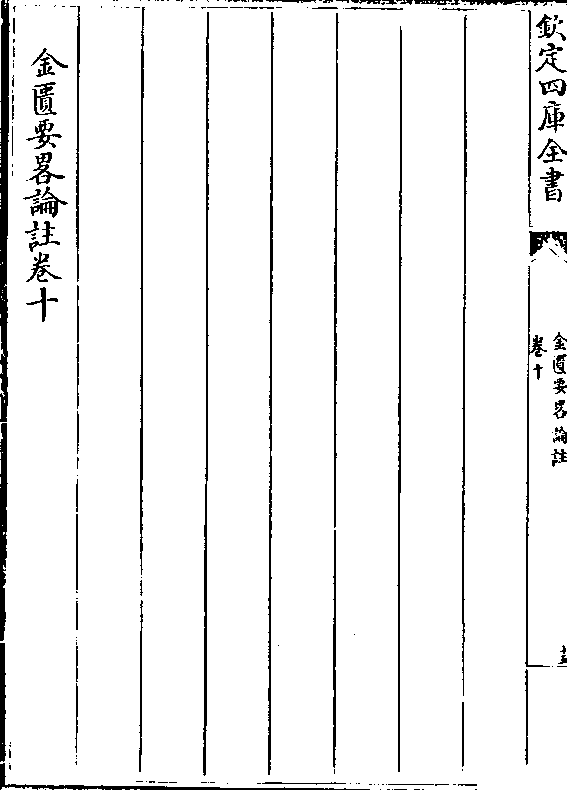 欽定四庫全書
金匱要畧論註
卷十
金匱要畧論註卷十